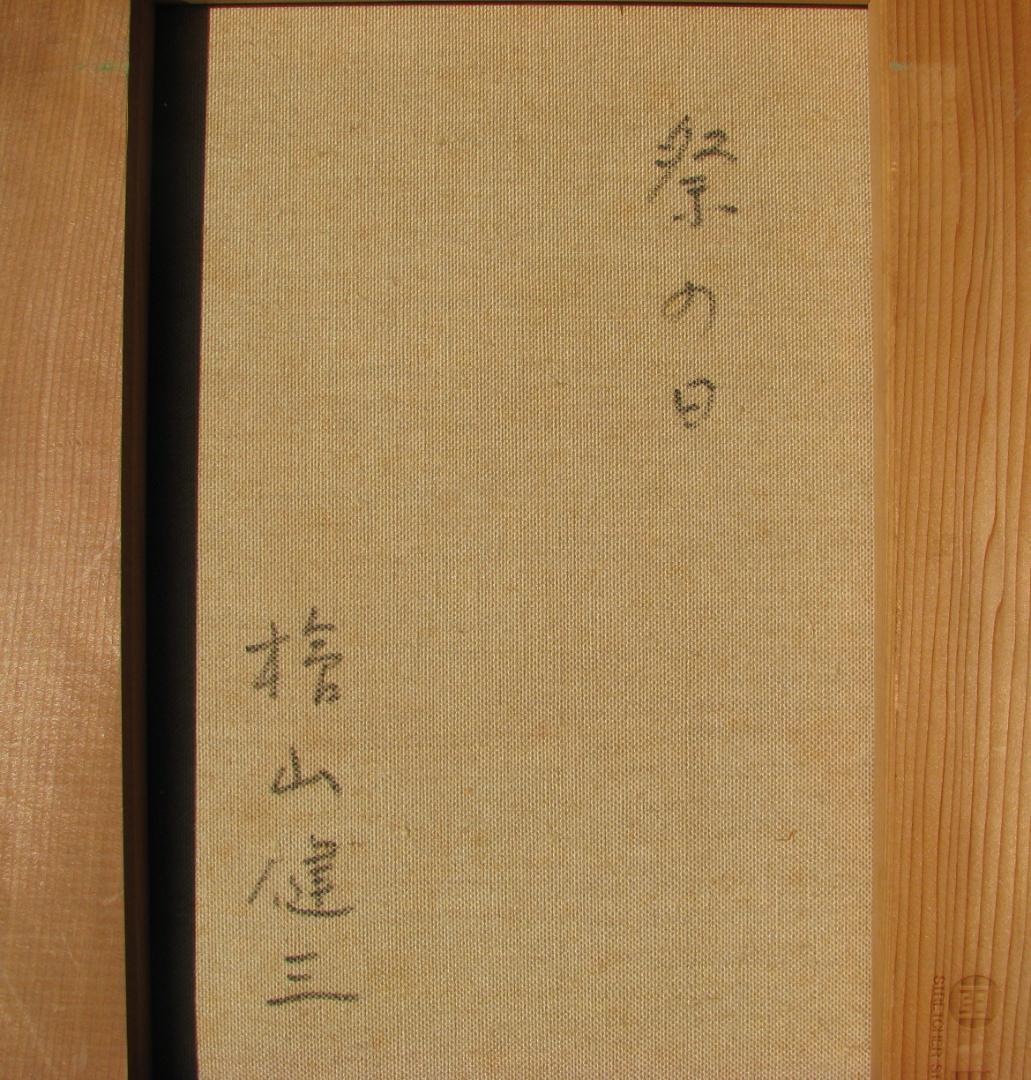 祭の日
檜山健三